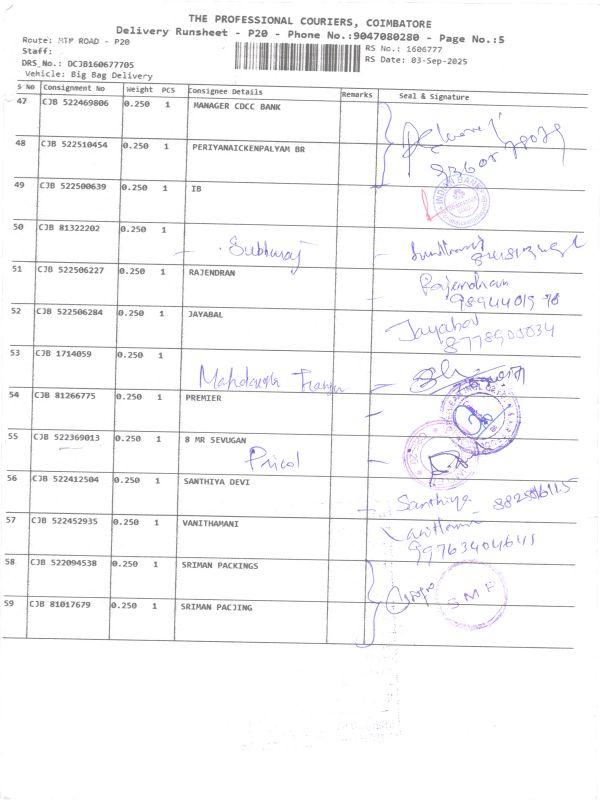 THE PROFESSIONAL COURIERS, COIMBATORE
Delivery Runsheet - P20 - Phone No.:9047080280 - Page No.:5
Route: MTP ROAD - P20
RS No.: 1606777
Staff:
RS Date: 03-Sep-2025
DRS_No.: DCJB160677705
Vehicle: Big Bag Delivery
S No Consignment No Weight PCS Consignee Details Remarks Seal & Signature
47 CJB 522469806 0.250 1 MANAGER CDCC BANK
48 CJB 522510454 0.250 1 PERIYANAICKENPALYAM BR
49 CJB 522500639 0.250 1 IB
INDIAN BANK
50 CJB 81322202 0.250 1
Subburaj
51 CJB 522506227 0.250 1 RAJENDRAN Rajendran
52 CJB 522506284 0.250 1 JAYABAL Jayabal
8778903034
53 CJB 1714059 0.250 1
54 CJB 81266775 0.250 1 PREMIER
55 CJB 522369013 0.250 1 8 MR SEVUGAN
Pricol
56 CJB 522412504 0.250 1 SANTHIYA DEVI Santhiya
57 CJB 522452935 0.250 1 VANITHAMANI
99763404641
58 CJB 522094538 0.250 1 SRIMAN PACKINGS
SMP
59 CJB 81017679 0.250 1 SRIMAN PACJING